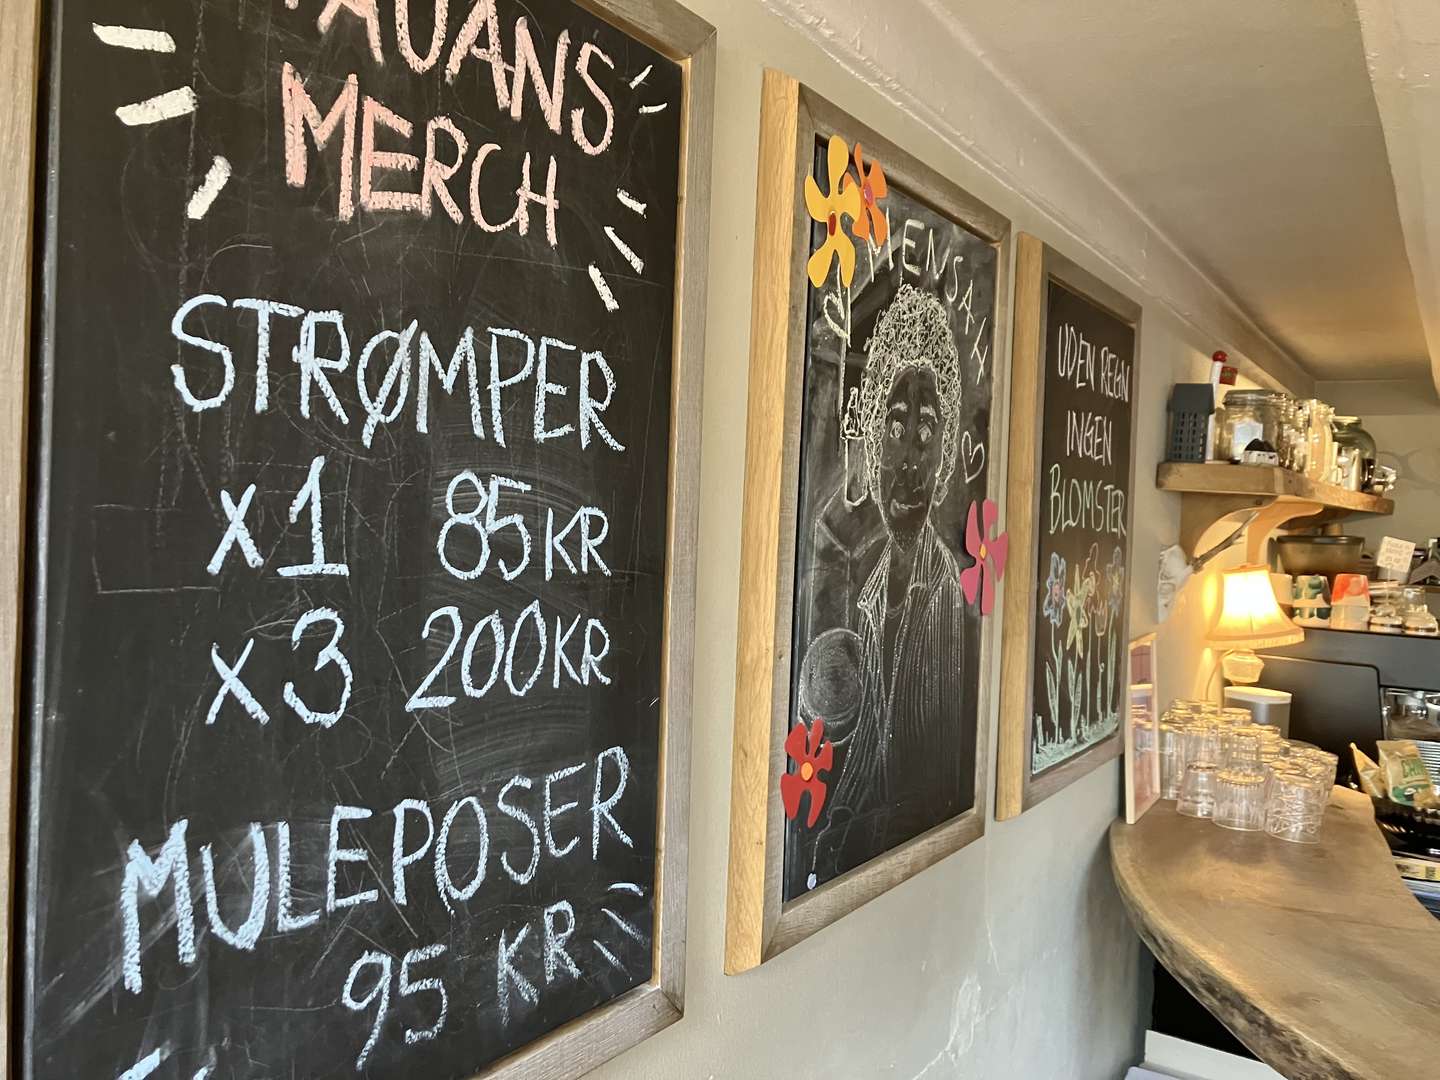 MERCH
STRØMPER
x 1 85 KR
x 3 200 KR
MULEPOSER
95 KR
MENSALY
UDEN REGN
INGEN
BLOMSTER